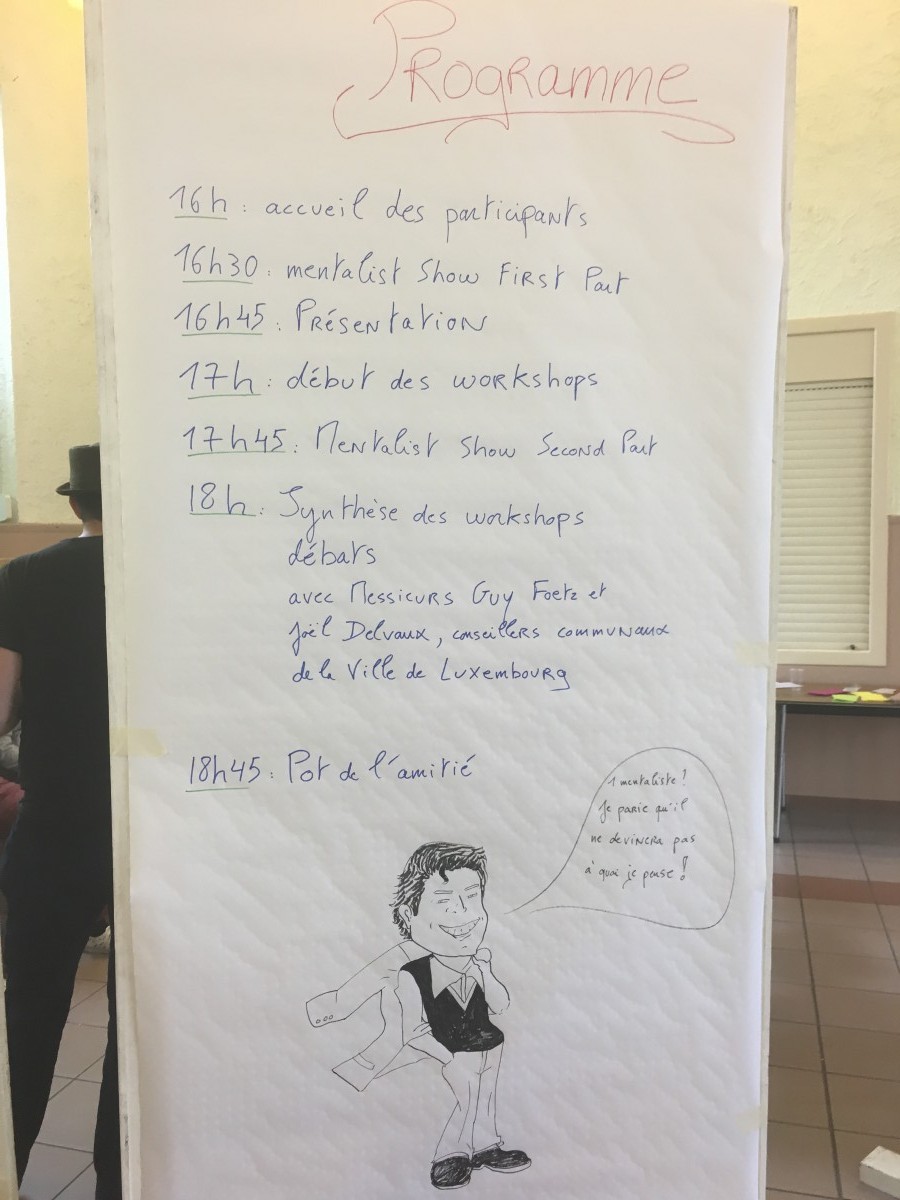 Programme
16h : accueil des participants
16h30 : mentalist Show First Part
16h45 : Présentation
17h : début des workshops
17h45 : Mentalist Show Second Part
18h : Synthèse des workshops
débats
avec Messieurs Guy Foetz et
Joël Delvaux, conseillers communaux
de la Ville de Luxembourg
18h45 : Pot de l'amitié
1 mentaliste !
Je parie qu'il
ne devinera pas
à quoi je pense !